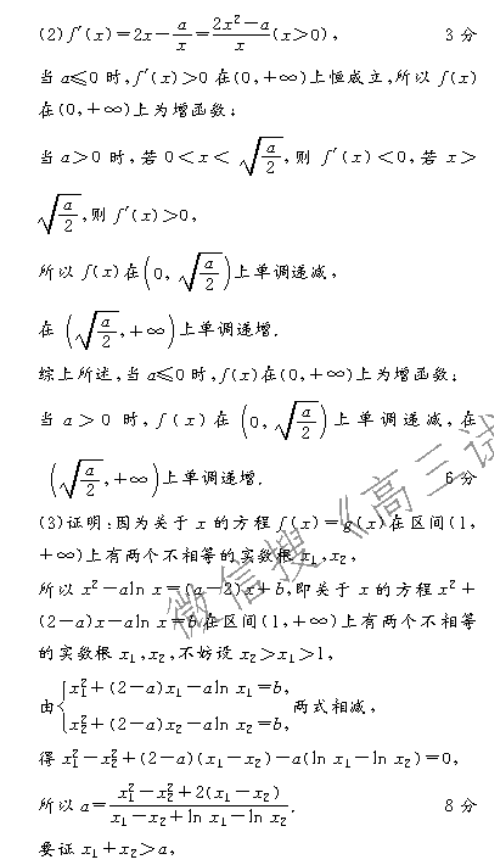 (2)f′(x)=2x-a/x=(2x²-a)/x(x>0), 3分
当a≤0时,f′(x)>0在(0,+∞)上恒成立,所以f(x)
在(0,+∞)上为增函数;
当a>0时,若0<x<√(a/2),则f′(x)<0,若x>
√(a/2),则f′(x)>0,
所以f(x)在(0,√(a/2))上单调递减,
在(√(a/2),+∞)上单调递增.
综上所述,当a≤0时,f(x)在(0,+∞)上为增函数;
当a>0时,f(x)在(0,√(a/2))上单调递减,在
(√(a/2),+∞)上单调递增. 6分
(3)证明:因为关于x的方程f(x)=g(x)在区间(1,
+∞)上有两个不相等的实数根x₁,x₂,
所以x²-aln x=(a-2)x+b,即关于x的方程x²+
(2-a)x-aln x=b在区间(1,+∞)上有两个不相等
的实数根x₁,x₂,不妨设x₂>x₁>1,
由{x₁²+(2-a)x₁-aln x₁=b,
x₂²+(2-a)x₂-aln x₂=b,两式相减,
得x₁²-x₂²+(2-a)(x₁-x₂)-a(ln x₁-ln x₂)=0,
所以a=(x₁²-x₂²+2(x₁-x₂))/(x₁-x₂+ln x₁-ln x₂). 8分
要证x₁+x₂>a,
微信搜《高三试